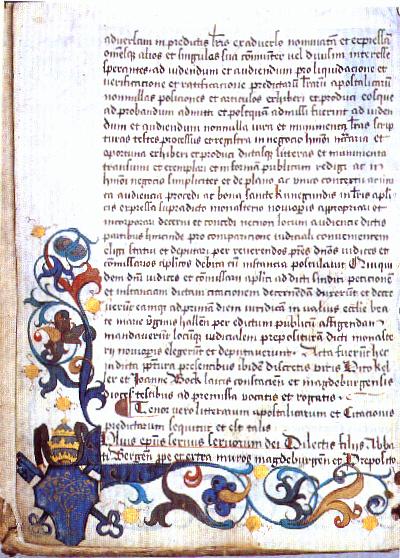 adversam in predictis lris ex adverso nominatam et expressam
omnesque alios et singulas sua comuniter vel divisim interesse
sperantes ad videndum et audiendum pro liquidacione et
verificatione et ratificatione predictarum lrarum apostolicarum
nonnullas posiciones et articulos exhiberi et produci eosque
ad probandum admitti et postquam admissi fuerint ad viden
dum et audiendum nonnulla iura et munimenta lras scrip
turas testes processus et registra in negocio hmoi necessaria et
oportuna exhiberi et produci dictasque litteras et munimenta
transumi et exemplari et in formam publicam redigi ac in
hmoi negocio simpliciter et de plano ac
ca audiencia procedi ac bona sancte Kunegundis in lris apli
cis expressa supradicto monasterio novioperis appropriari et
incorporari decerni et concedi necnon locum audiencie dictis
partibus hincinde pro comparacione iudiciali convenientem
eligi statui et deputari per reverendos pres dnos iudices et
comissarios aplicos debita cum instancia postulavit Quiqui
dem dni iudices et comissarii aplici ad dicti sindici peticionem
et instanciam dictam citacionem decernendam duxerunt et decre
verunt eamque ad primam diem iuridicam in valvis ecclie bea
te marie virginis hallen per edictum publicum affigendam
mandaverunt locumque iudicialem preposituram dicti monaste
ry novioperis elegerunt et deputaverunt Acta fuerunt hec
in dicta pptura presentibus ibidem discretis petro kel
er et Joanne Bock laicis constacien et magdeburgensis
dioces testibus ad premissa vocatis et rogatis
Tenor vero litterarum apostolicarum et Citacionis
predictarum sequitur et est talis
Pius epus servus servorum dei Dilectis filys Abba
ti Bergen ppe et extra muros magdeburgen et Preposito